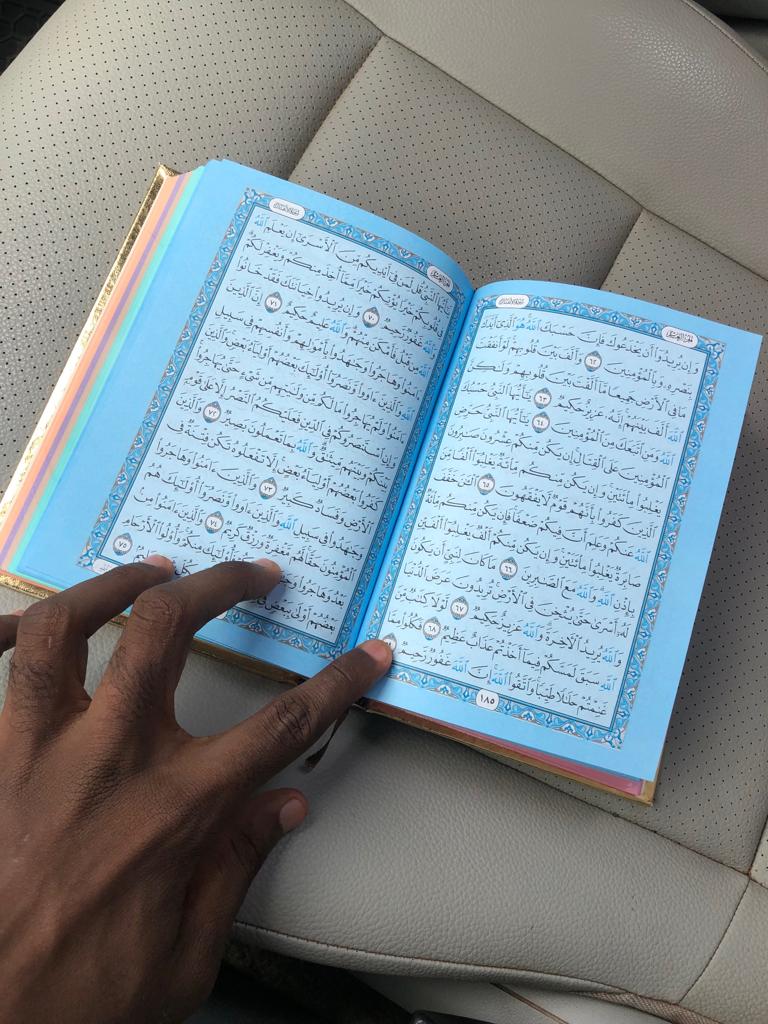 الجزء العاشر سورة الأنفال
وَإِن يُرِيدُوٓاْ أَن يَخْدَعُوكَ فَإِنَّ حَسْبَكَ ٱللَّهُۚ هُوَ ٱلَّذِيٓ أَيَّدَكَ
بِنَصْرِهِۦ وَبِٱلْمُؤْمِنِينَ ٦٢ وَأَلَّفَ بَيْنَ قُلُوبِهِمْۚ لَوْ أَنفَقْتَ
مَا فِي ٱلْأَرْضِ جَمِيعًا مَّآ أَلَّفْتَ بَيْنَ قُلُوبِهِمْ وَلَٰكِنَّ
ٱللَّهَ أَلَّفَ بَيْنَهُمْۚ إِنَّهُۥ عَزِيزٌ حَكِيمٌ ٦٣ يَٰٓأَيُّهَا ٱلنَّبِيُّ حَسْبُكَ
ٱللَّهُ وَمَنِ ٱتَّبَعَكَ مِنَ ٱلْمُؤْمِنِينَ ٦٤ يَٰٓأَيُّهَا ٱلنَّبِيُّ حَرِّضِ
ٱلْمُؤْمِنِينَ عَلَى ٱلْقِتَالِۚ إِن يَكُن مِّنكُمْ عِشْرُونَ صَٰبِرُونَ
يَغْلِبُواْ مِاْئَتَيْنِۚ وَإِن يَكُن مِّنكُم مِّاْئَةٌ يَغْلِبُوٓاْ أَلْفًا مِّنَ
ٱلَّذِينَ كَفَرُواْ بِأَنَّهُمْ قَوْمٌ لَّا يَفْقَهُونَ ٦٥ ٱلْـَٰٔنَ خَفَّفَ
ٱللَّهُ عَنكُمْ وَعَلِمَ أَنَّ فِيكُمْ ضَعْفًاۚ فَإِن يَكُن مِّنكُم مِّاْئَةٌ
صَابِرَةٌ يَغْلِبُواْ مِاْئَتَيْنِۚ وَإِن يَكُن مِّنكُمْ أَلْفٌ يَغْلِبُوٓاْ أَلْفَيْنِ
بِإِذْنِ ٱللَّهِۗ وَٱللَّهُ مَعَ ٱلصَّٰبِرِينَ ٦٦ مَا كَانَ لِنَبِيٍّ أَن يَكُونَ
لَهُۥٓ أَسْرَىٰ حَتَّىٰ يُثْخِنَ فِي ٱلْأَرْضِۚ تُرِيدُونَ عَرَضَ ٱلدُّنْيَا
وَٱللَّهُ يُرِيدُ ٱلْأٓخِرَةَۗ وَٱللَّهُ عَزِيزٌ حَكِيمٌ ٦٧ لَّوْلَا كِتَٰبٌ مِّنَ
ٱللَّهِ سَبَقَ لَمَسَّكُمْ فِيمَآ أَخَذْتُمْ عَذَابٌ عَظِيمٌ ٦٨ فَكُلُواْ مِمَّا
غَنِمْتُمْ حَلَٰلًا طَيِّبًاۚ وَٱتَّقُواْ ٱللَّهَۚ إِنَّ ٱللَّهَ غَفُورٌ رَّحِيمٌ
١٨٥
الجزء العاشر سورة الأنفال
يَٰٓأَيُّهَا ٱلنَّبِيُّ قُل لِّمَن فِيٓ أَيْدِيكُم مِّنَ ٱلْأَسْرَىٰٓ إِن يَعْلَمِ ٱللَّهُ
فِي قُلُوبِكُمْ خَيْرًا يُؤْتِكُمْ خَيْرًا مِّمَّآ أُخِذَ مِنكُمْ وَيَغْفِرْ لَكُمْۚ
وَٱللَّهُ غَفُورٌ رَّحِيمٌ ٧٠ وَإِن يُرِيدُواْ خِيَانَتَكَ فَقَدْ خَانُواْ
ٱللَّهَ مِن قَبْلُ فَأَمْكَنَ مِنْهُمْۗ وَٱللَّهُ عَلِيمٌ حَكِيمٌ ٧١ إِنَّ ٱلَّذِينَ
ءَامَنُواْ وَهَاجَرُواْ وَجَٰهَدُواْ بِأَمْوَٰلِهِمْ وَأَنفُسِهِمْ فِي سَبِيلِ
ٱللَّهِ وَٱلَّذِينَ ءَاوَواْ وَّنَصَرُوٓاْ أُوْلَٰٓئِكَ بَعْضُهُمْ أَوْلِيَآءُ بَعْضٍۚ وَٱلَّذِينَ
ءَامَنُواْ وَلَمْ يُهَاجِرُواْ مَا لَكُم مِّن وَلَٰيَتِهِم مِّن شَيْءٍ حَتَّىٰ يُهَاجِرُواْۚ
وَإِنِ ٱسْتَنصَرُوكُمْ فِي ٱلدِّينِ فَعَلَيْكُمُ ٱلنَّصْرُ إِلَّا عَلَىٰ قَوْمٍۭ
بَيْنَكُمْ وَبَيْنَهُم مِّيثَٰقٌۗ وَٱللَّهُ بِمَا تَعْمَلُونَ بَصِيرٌ ٧٢ وَٱلَّذِينَ
كَفَرُواْ بَعْضُهُمْ أَوْلِيَآءُ بَعْضٍۚ إِلَّا تَفْعَلُوهُ تَكُن فِتْنَةٌ فِي
ٱلْأَرْضِ وَفَسَادٌ كَبِيرٌ ٧٣ وَٱلَّذِينَ ءَامَنُواْ وَهَاجَرُواْ
وَجَٰهَدُواْ فِي سَبِيلِ ٱللَّهِ وَٱلَّذِينَ ءَاوَواْ وَّنَصَرُوٓاْ أُوْلَٰٓئِكَ هُمُ
ٱلْمُؤْمِنُونَ حَقًّاۚ لَّهُم مَّغْفِرَةٌ وَرِزْقٌ كَرِيمٌ ٧٤ وَٱلَّذِينَ ءَامَنُواْ مِنۢ
بَعْدُ وَهَاجَرُواْ أُوْلَٰٓئِكَ مِنكُمْۚ وَأُوْلُواْ ٱلْأَرْحَامِ
بَعْضُهُمْ أَوْلَىٰ بِبَعْضٍ فِي بِكُلِّ ٧٥